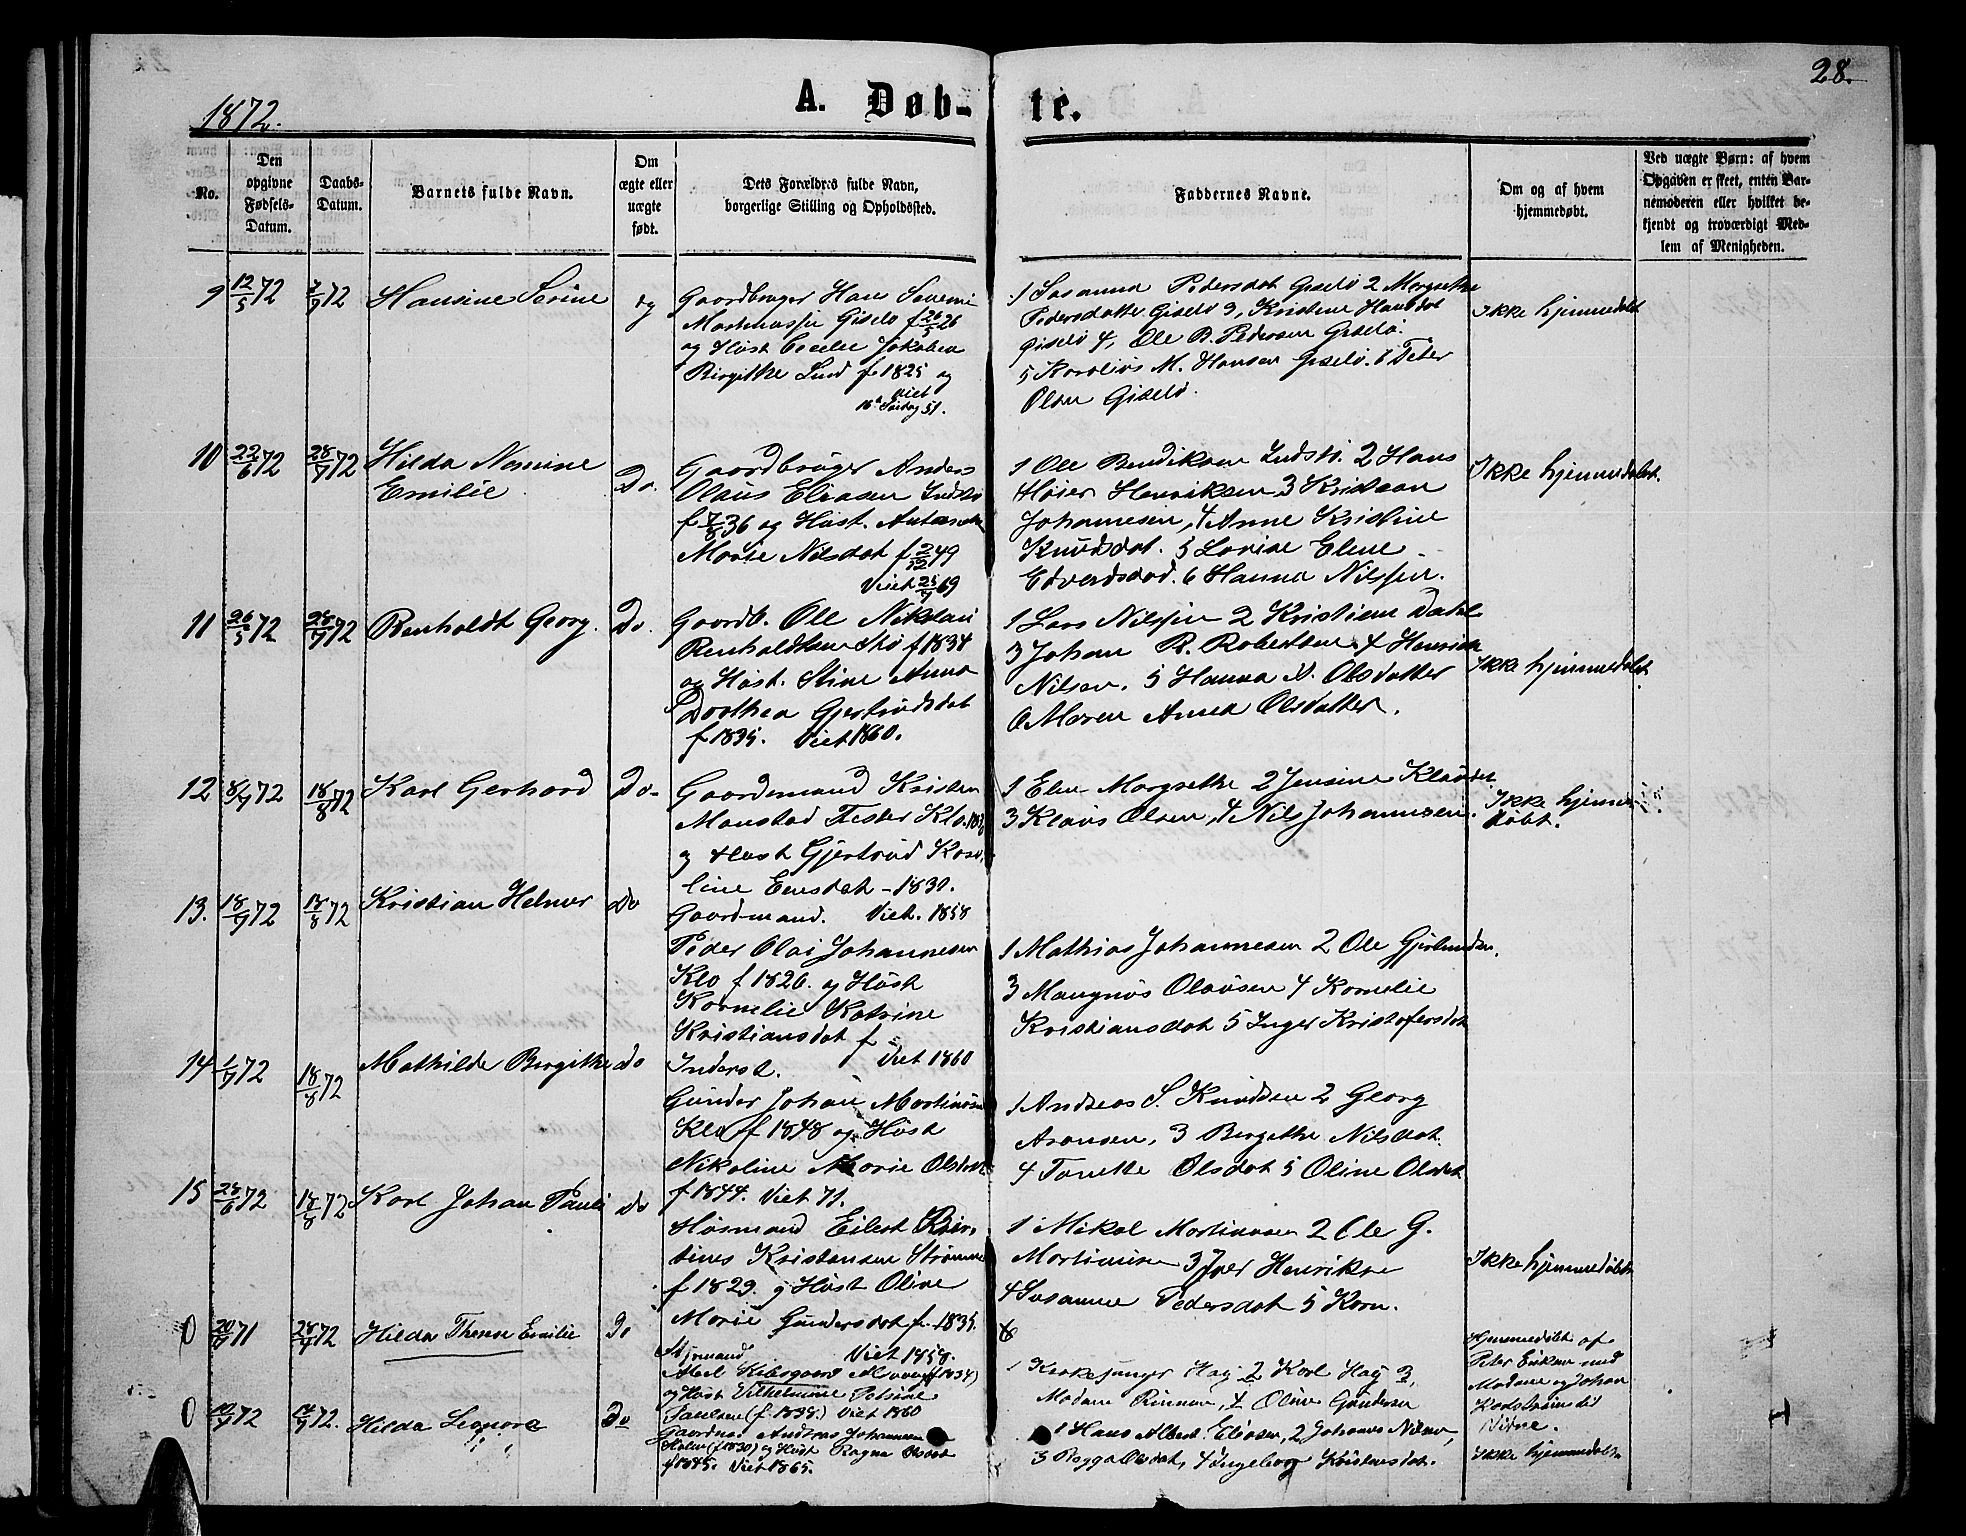 28.
1872.
A. Døb-
te.
No.
Den
opgivne
Fødsels-
Datum.
Daabs-
Datum.
Barnets fulde Navn.
Om
ægte eller
uægte
født.
Dets Forældres fulde Navn,
borgerlige Stilling og Opholdssted.
Faddernes Navne.
Om og af hvem
hjemmedøbt.
Ved uægte Børn: af hvem
Opgaven er skeet, enten Bar-
nemoderen eller hvilket be-
kjendt og troværdigt Med-
lem af Menigheden.
9 12/5 72 72 Hansine Serine
Gaardbruger Hans
Gislø f 26
og Hust Cecelie Jakobea
Birgitte Lund f 1825 og
Viet
51.
1 Susanna Pedersdat Gislø 2 Margrethe
Pedersdatter Gislø 3, Kristine Hansdat
Gislø 4, Ole B. Pedersen Gislø.
5 Karolius M. Hansen Gislø. 6 Peter
Olsen Gislø.
Ikke hjemmedøbt
10 22/6 72 28/7 72 Hilda Nemine
Emilie
Do.
Gaardbruger Anders
Olaus Eliasen
f 7/8 36 og Hust.
Marie Nilsdat f 2/12 49
Viet 25/9 69
1 Ole Bendiksen 2 Hans
Høier Henriksen 3 Kristian
Johannesen, 4 Anne Kristine
Knudsdat. 5 Lovise Elene
Edverdsdad. 6 Hanna Nilssen.
Ikke hjemmedøbt.
11 26/5 72 28/7 72 Renholdt Georg.
Do.
Gaardb. Ole Nikolai
Renholdtsen Stø f 1834
og Hust. Stine Anna
Dorthea Gjertrudsdat
f 1835. Viet 1860.
1 Lars Nilssen 2 Kristian Dahl
3 Johan R. Robertsen 4 Henrik
Nilsen. 5 Hanna N. Olsdatter
6 Maren Anna Olsdatter.
Ikke hjemmedøbt
12 8/7 72 18/8 72 Karl Gerhard
Do-
Gaardmand Kristen
Monstad Fester Klo.
og Hust Gjertrud Karo-
line Enesdat - 1830.
Viet. 1858
1 Elen Margrethe 2 Jensine Klausd.
3 Klaus Olsen, 4 Nils Johannesen.
Ikke hjemme-
døbt.
13. 18/7 72 18/8 72 Kristian Helmer
Do
Gaardmand.
Peder Olai Johannesen
Klo f 1826. og Hust
Kornelie Katrine
Kristiansdat f
Viet 1860
1 Mathias Johannesen 2 Ole Gjertsen.
3 Mangnus Olausen 4 Kornelie
Kristiansdat 5 Inger Kristofersdat
14 1/7 72 18/8 72 Mathilde Bergitte
Do
Inderst.
Gunder Johan Martinus
Klo f 1848 og Hust
Nikoline Marie Olsdat
f 1844. Viet 71.
1 Andreas S. Knudsen 2 Georg
Aronsen, 3 Bergethe Nilsdat
4 Tonette Olsdat 5 Oline Olsdat
15 28/6 72 18/8 72 Karl Johan Pauli
Do
Husmand Eilert
Kristensen Strømme
f 1829. og Hust Oline
Marie Gundersdat f. 1835.
Viet 1859.
1 Mikal Martinusen 2 Ole G.
Martinusen 3 Iver Henriksen
4 Susanne Pedersdat 5 Korn.
Ikke hjemmedøbt
0 71 28/7 72 Hilda Emilie
Do
f 1834)
og Hust Vilhelmine
Paulsen (f. 1839.) Viet 1860
1 Kirkesanger Hag 2 Karl Hag 3,
Madame 4 Oline Gundersen
Hjemmedøbt af
Peter Eriksen med
Madame og Johan
0 72 72. Hilda Leonora
Do
Andreas Johannesen
(f 1830) og Hust Ragna Olsdat
f 1845. Viet 1865.
1 Hans Albert Eliasen, 2 Johannes Nilsen,
3 Olsdat, 4 Ingeborg Kristensdat.
Ikke hjemmedøbt.